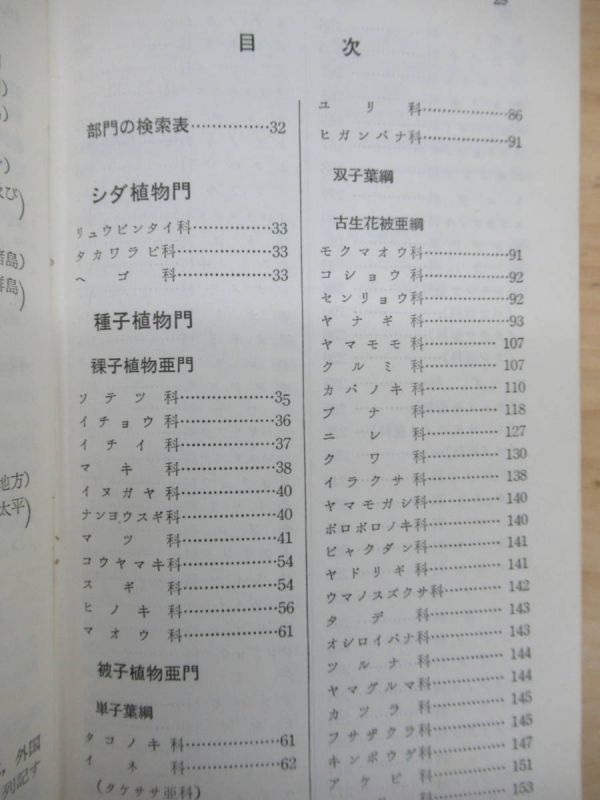 29
目次
部門の検索表……………32
シダ植物門
リュウビンタイ科………………33
タカワラビ科………………33
ヘゴ科………………33
種子植物門
裸子植物亜門
ソテツ科………………35
イチョウ科………………36
イチイ科………………37
マキ科………………38
イヌガヤ科………………40
ナンヨウスギ科………………40
マツ科………………41
コウヤマキ科………………54
スギ科………………54
ヒノキ科………………56
マオウ科………………61
被子植物亜門
単子葉綱
タコノキ科………………61
イネ科………………62
(タケササ亜科)
ユリ科………………86
ヒガンバナ科………………91
双子葉綱
古生花被亜綱
モクマオウ科………………91
コショウ科………………92
センリョウ科………………92
ヤナギ科………………93
ヤマモモ科……………107
クルミ科……………107
カバノキ科……………110
ブナ科……………118
ニレ科……………127
クワ科……………130
イラクサ科……………138
ヤマモガシ科……………140
ボロボロノキ科……………140
ビャクダン科……………141
ヤドリギ科……………141
ウマノスズクサ科……………142
タデ科……………143
オシロイバナ科……………143
ツルナ科……………144
ヤマグルマ科……………144
カツラ科……………145
フサザクラ科……………145
キンポウゲ科……………147
アケビ科……………151
153
地方)
太平)
外国
列記す